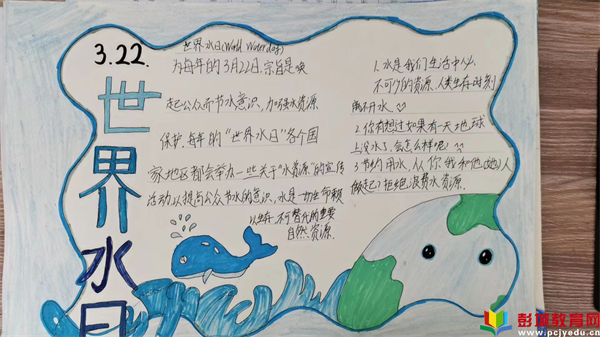 3.22.
世界水日
世界水日(World Water day)
为每年的3月22日.宗旨是唤
起公众所节水意识,加强水资源
保护.每年的“世界水日”各个国
家地区都会举办一些关于“水资源”的宣传
活动以提高公众节水的意识,水是一切生命赖
以生存.不可替代的重要
自然资源.
1.水是我们生活中必
不可少的资源.人类生存时刻
离不开水
2.你有想过如果有一天地球
上没水了.会怎么样呢?
3.节约用水,从你我和他(她)人
做起;拒绝浪费水资源.
彭城教育网
www.pcjyedu.cn